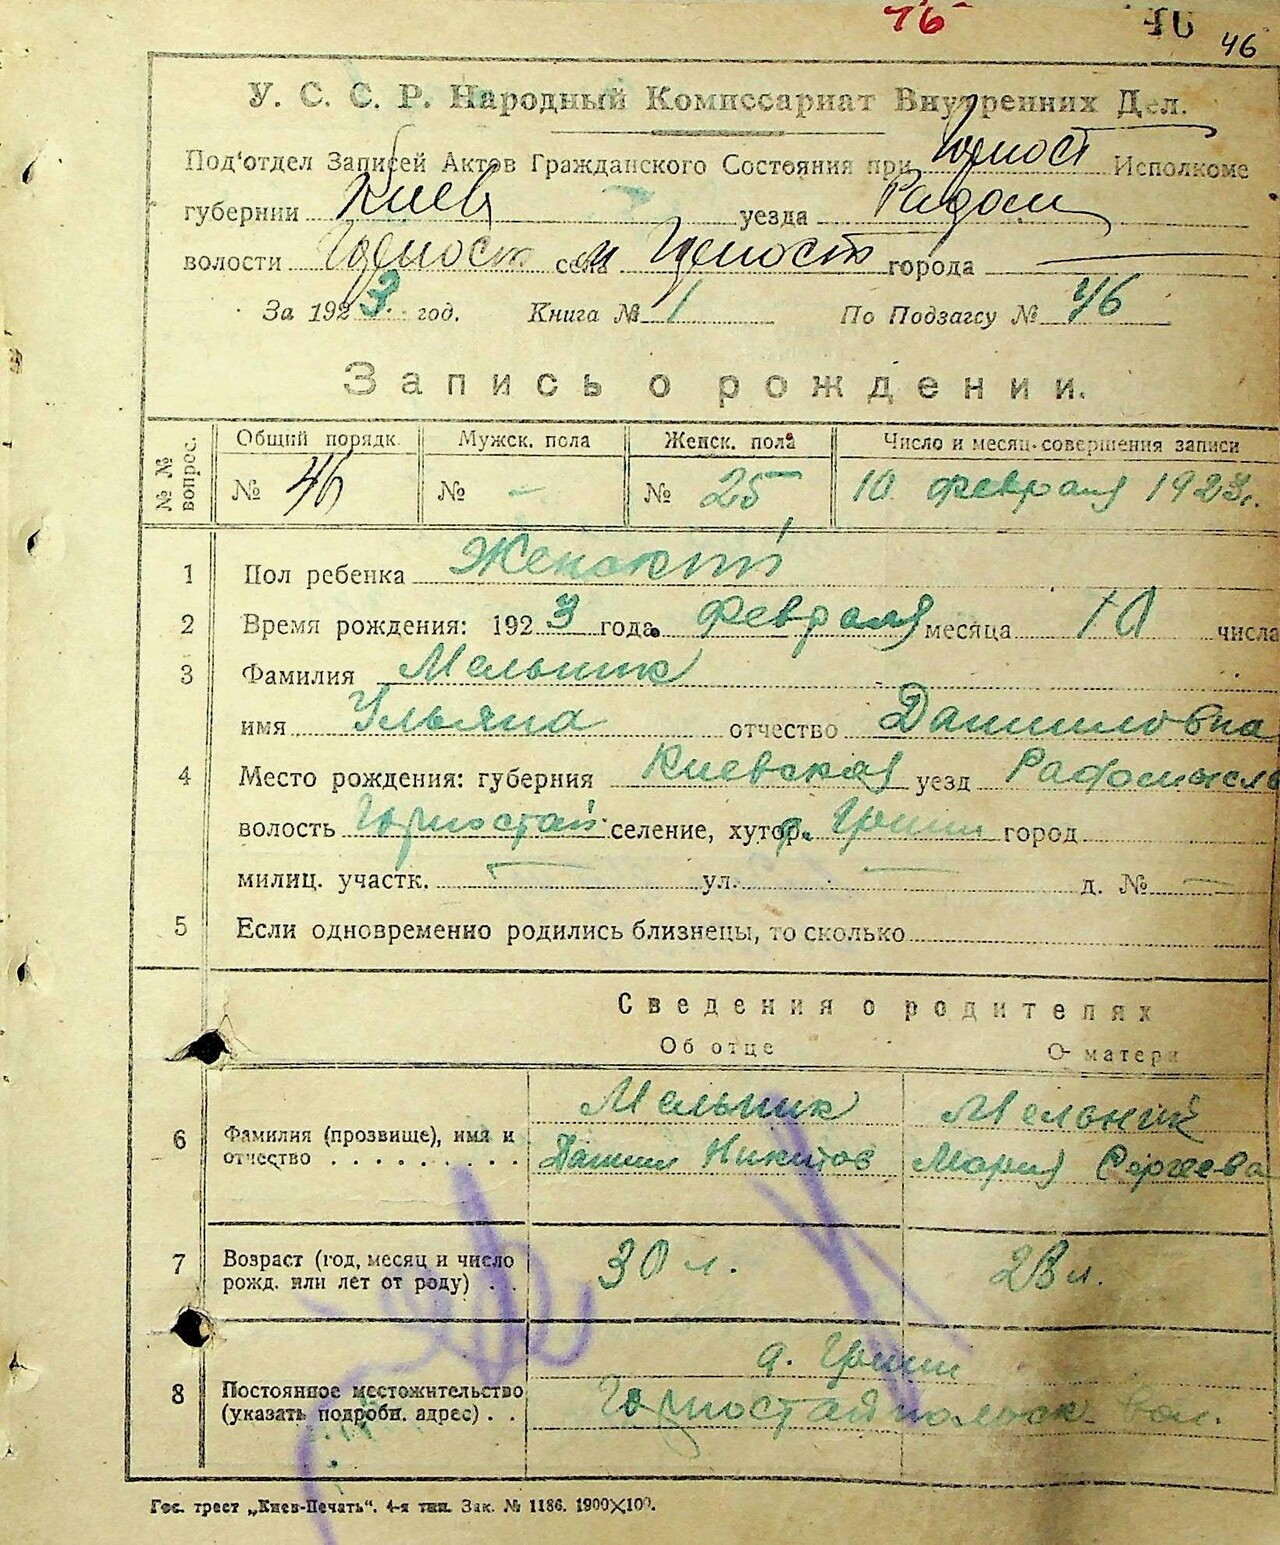 46 46 46
У. С. С. Р. Народный Комиссариат Внутренних Дел.
Под'отдел Записей Актов Гражданского Состояния при Горност Исполкоме
губернии Киев уезда Радом
волости Горност села м Горност города —
За 1923 год. Книга № 1 По Подзагсу № 46
Запись о рождении.
№№ вопрос. Общий порядк. Мужск. пола Женск. пола Число и месяц совершения записи
№ 46 № - № 25 10 февраля 1923 г.
1 Пол ребенка Женский
2 Время рождения: 1923 года. февраля месяца 10 числа
3 Фамилия Мельник
имя Ульяна отчество Даниловна
4 Место рождения: губерния Киевская уезд Радомысль
волость Горностай. селение, хутор д. город
милиц. участк. — ул. — д. № —
5 Если одновременно родились близнецы, то сколько
Сведения о родителях
Об отце О матери
6 Фамилия (прозвище), имя и отчество . . . . . . . . .
Мельник Мельник
Данил Никитов Мария Сергеева
7 Возраст (год, месяц и число рожд. или лет от роду) . .
30 л. 28 л.
8 Постоянное местожительство (указать подробн. адрес) . .
д.
Горностайпольск. вол.
Гос. трест „Киев-Печать". 4-я тип. Зак. № 1186. 1900×100.